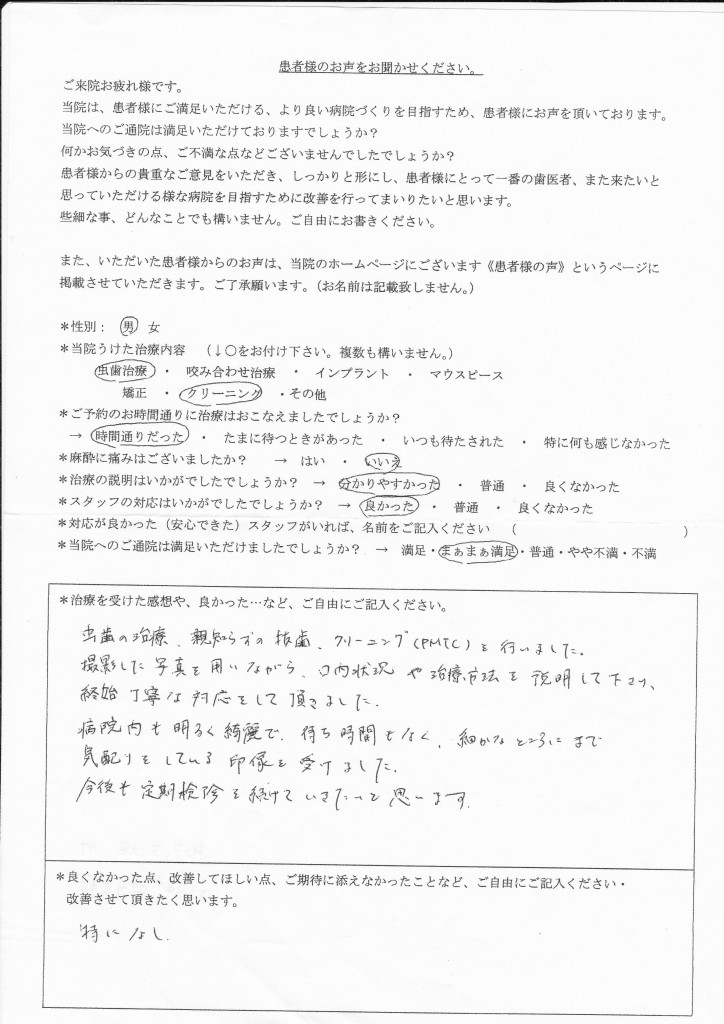 患者様のお声をお聞かせください。
ご来院お疲れ様です。
当院は、患者様にご満足いただける、より良い病院づくりを目指すため、患者様にお声を頂いております。
当院へのご通院は満足いただけておりますでしょうか？
何かお気づきの点、ご不満な点などございませんでしたでしょうか？
患者様からの貴重なご意見をいただき、しっかりと形にし、患者様にとって一番の歯医者、また来たいと
思っていただける様な病院を目指すために改善を行ってまいりたいと思います。
些細な事、どんなことでも構いません。ご自由にお書きください。
また、いただいた患者様からのお声は、当院のホームページにございます《患者様の声》というページに
掲載させていただきます。ご了承願います。（お名前は記載致しません。）
＊性別： 男 女
＊当院うけた治療内容 （↓○をお付け下さい。複数も構いません。）
虫歯治療 ・ 咬み合わせ治療 ・ インプラント ・ マウスピース
矯正 ・ クリーニング ・その他
＊ご予約のお時間通りに治療はおこなえましたでしょうか？
→ 時間通りだった ・ たまに待つときがあった ・ いつも待たされた ・ 特に何も感じなかった
＊麻酔に痛みはございましたか？ → はい ・ いいえ
＊治療の説明はいかがでしたでしょうか？ → 分かりやすかった ・ 普通 ・ 良くなかった
＊スタッフの対応はいかがでしたでしょうか？ → 良かった ・ 普通 ・ 良くなかった
＊対応が良かった（安心できた）スタッフがいれば、名前をご記入ください （ ）
＊当院へのご通院は満足いただけましたでしょうか？ → 満足・まぁまぁ満足・普通・やや不満・不満
＊治療を受けた感想や、良かった…など、ご自由にご記入ください。
虫歯の治療、親知らずの抜歯、クリーニング(PMTC)を行いました。
撮影した写真を用いながら、口内状況や治療方法を説明して下さり、
終始丁寧な対応をして頂きました。
病院内も明るく綺麗で、待ち時間もなく、細かなところにまで
気配りをしている印象を受けました。
今後も定期検診を続けていきたいと思います。
＊良くなかった点、改善してほしい点、ご期待に添えなかったことなど、ご自由にご記入ください・
改善させて頂きたく思います。
特になし.